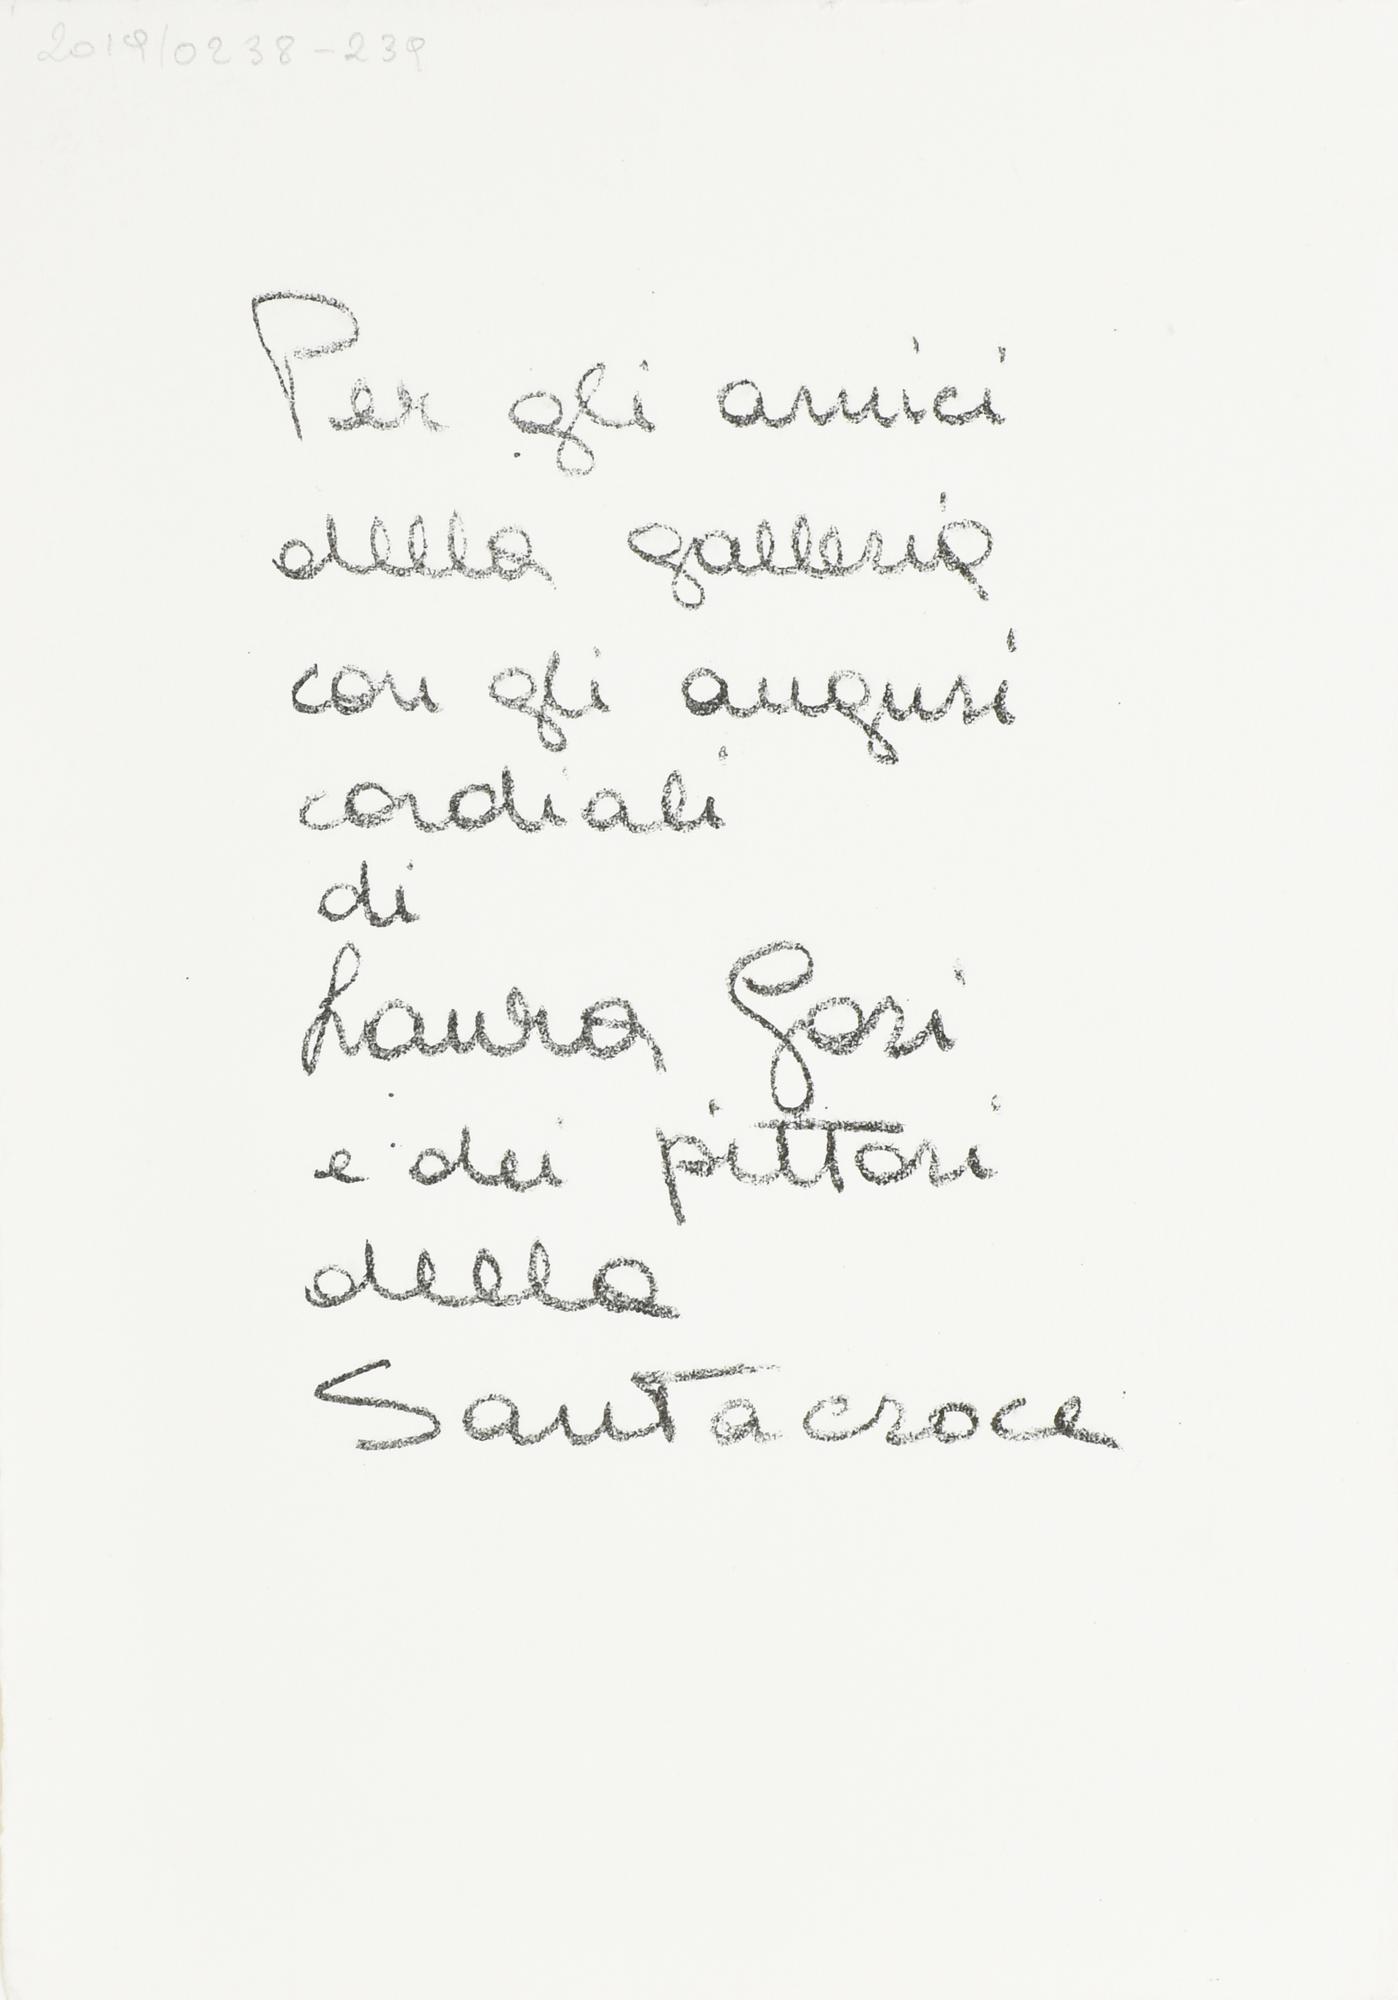 2019/0238-239
Per gli amici
della galleria
con gli auguri
cordiali
di
Laura Gori
e dei pittori
della
Santacroce